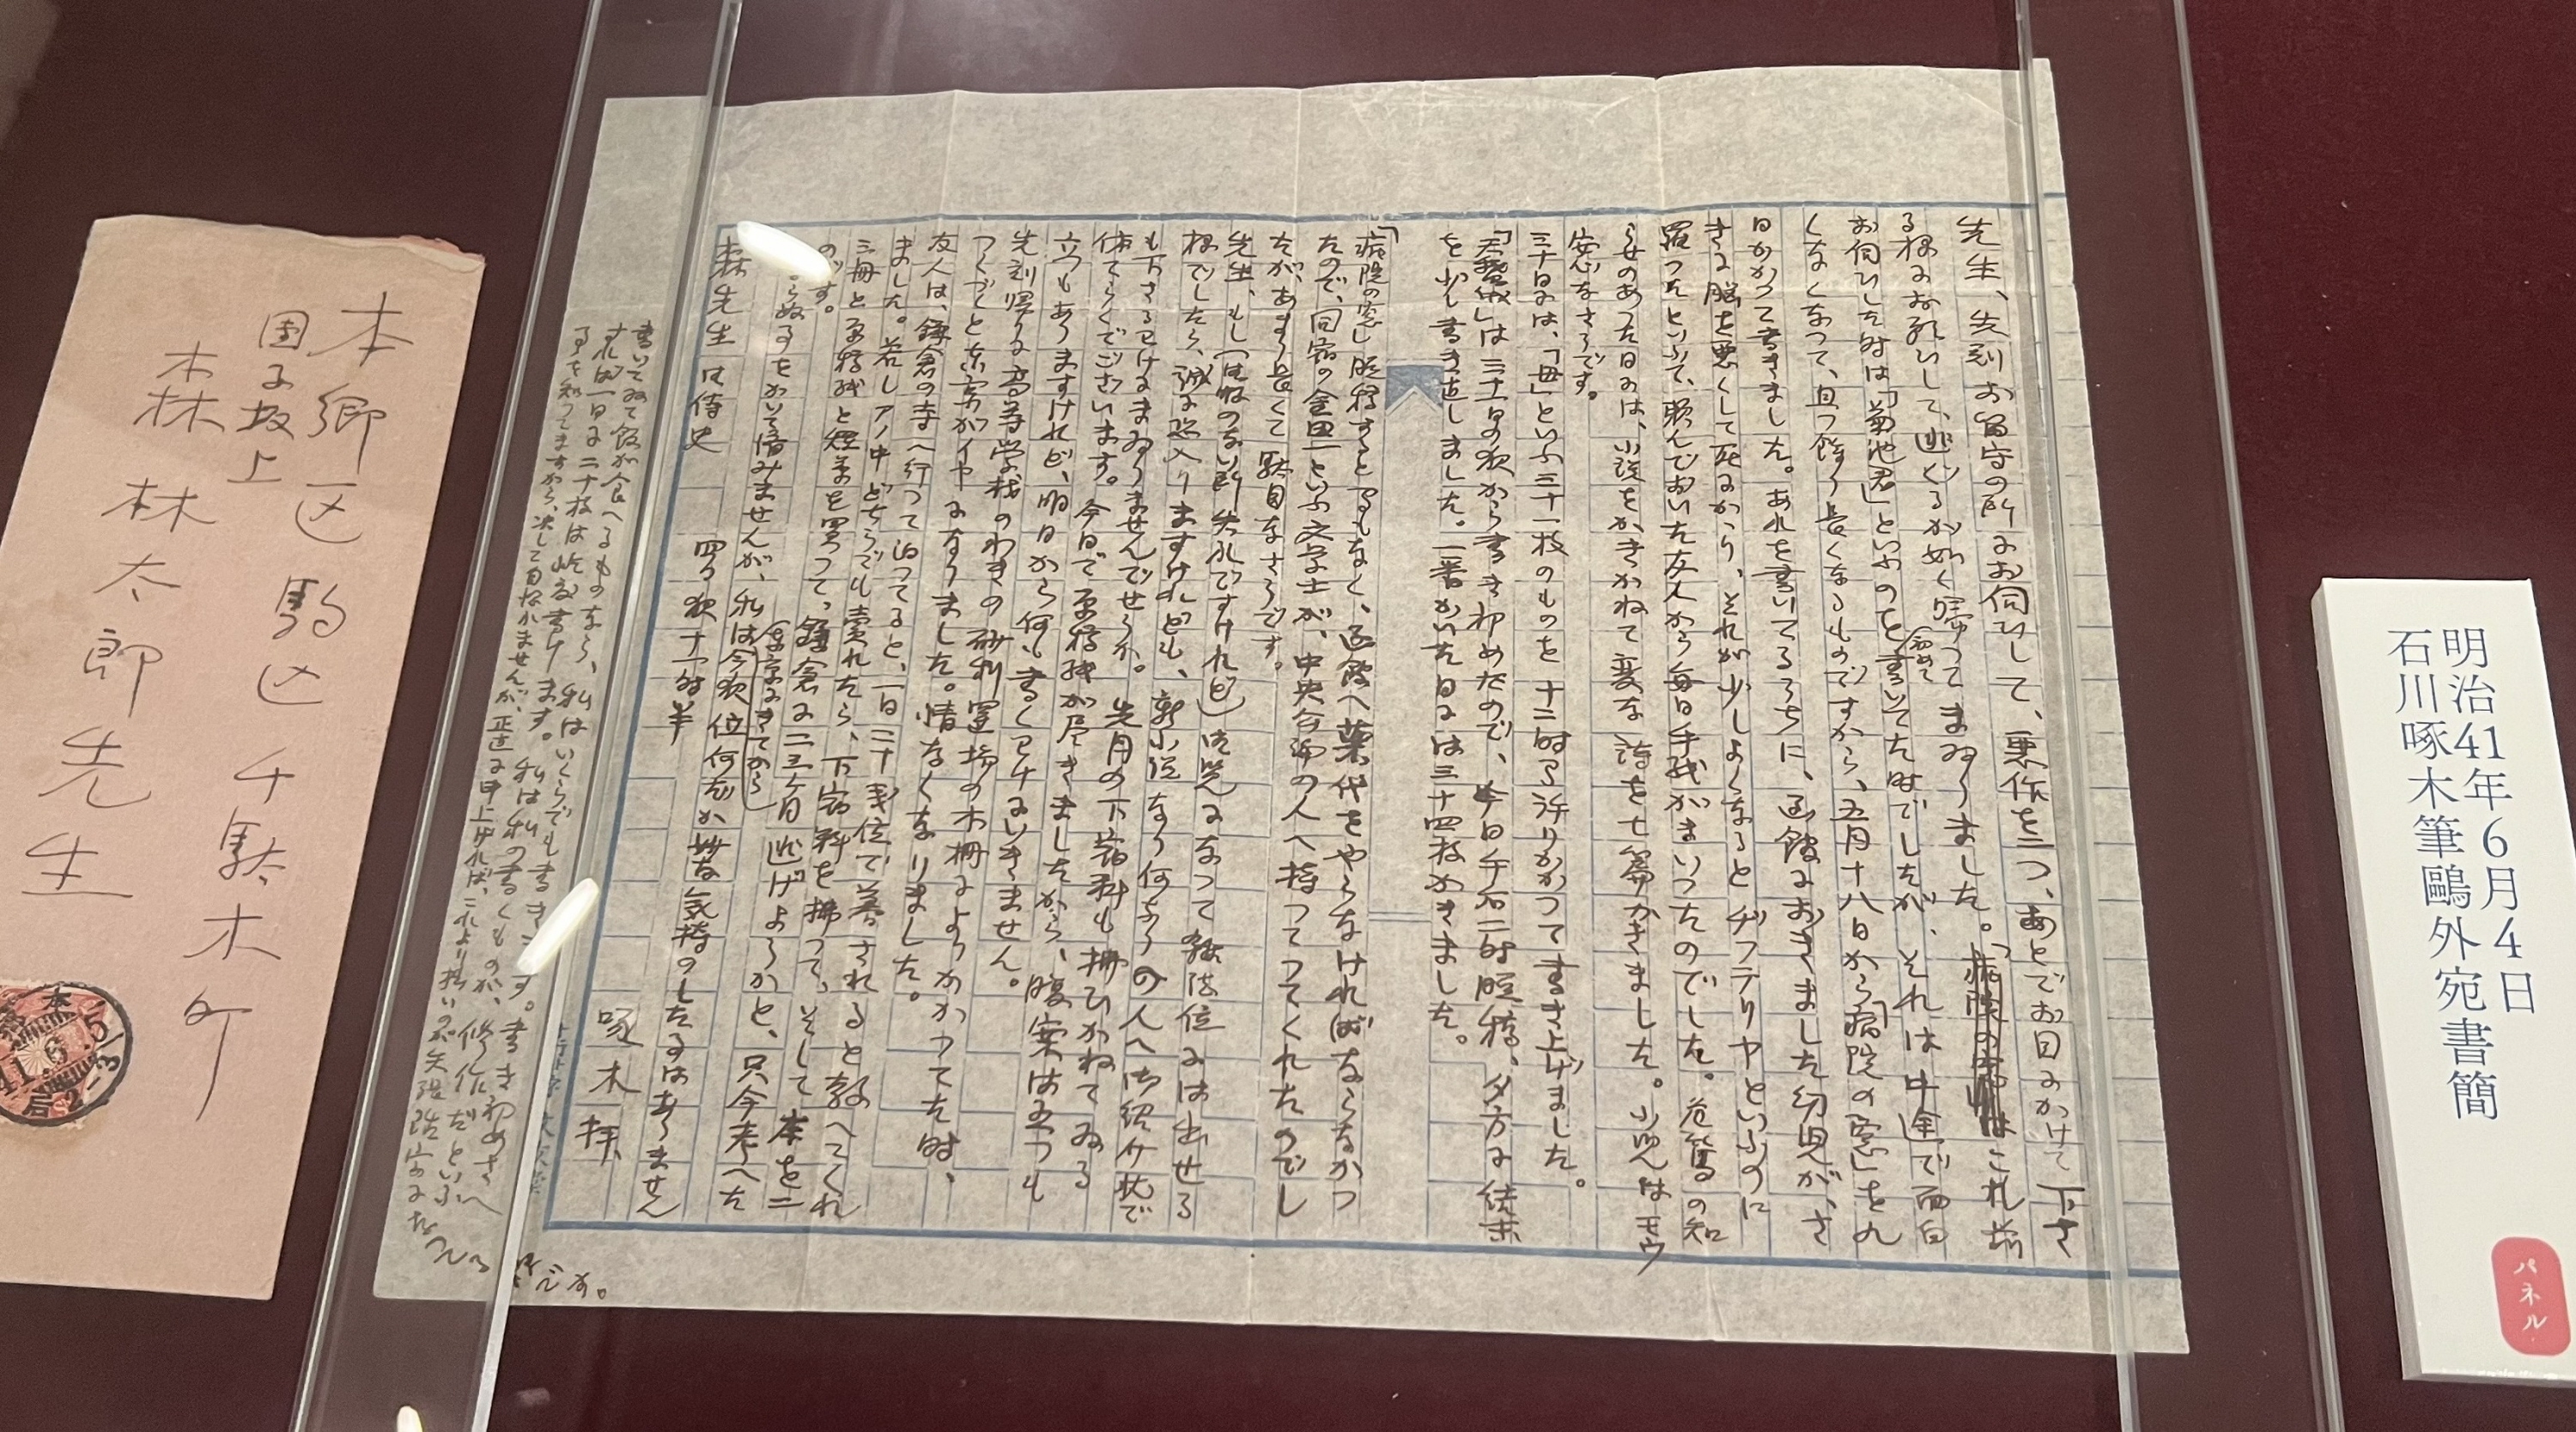 明治41年6月4日
石川啄木筆鷗外宛書簡
パネル
先生、先刻お留守の所にお伺ひして、悪作を二つ、あとでお目にかけて下さ
る様にお願いして、逃ぐるが如く帰つてまゐりました。「病院の は これ前
お伺ひした時は「菊池君」といふのを初めて書いてた時でしたが、それは中途で面白
くなくなつて、且つ余り長くなるものですから、五月十八日から「病院の窓」を九
日かかつて書きました。あれを書いてるうちに、函館におきました幼児が、さ
きに脳を悪くして死にかゝり、それが少しよくなるとヂフテリヤといふのに
罹つたといふて、頼んでおいた友人から毎日手紙がまいつたのでした。危篤の知
らせのあつた日には、小説をかきかねて変な詩を七篇かきました。小児はモウ
安心なさうです。
三十日には、「母」といふ三十一枚のものを十二時間許りかかつて書き上げました。
「天鵞絨」は三十一日の夜から書き初めたので、今日午后二時脱稿、夕方に結末
を少し書き直しました。一番かいた日には三十四枚かきました。
「病院の窓」脱稿すると間もなく、函館へ薬代をやらなければならなかつ
たので、同宿の金田一といふ文学士が、中央公論の人へ持つてつてくれたのでし
たが、あまり長くて駄目なさうです。
先生、もし(御暇のない所失礼ですけれど)御覧になつて雑誌位には出せる
様でしたら、誠に恐入りますけれども、新小説なり何なりの人へ御紹介状で
も下さるわけにまゐりませんでせうか。先月の下宿料も拂ひかねてゐる
体たらくでございます。今日で原稿紙が尽きましたから、腹案は五つも
立つてありますけれど、明日から何も書くワケにいきません。
先刻帰りに高等学校のわきの砂利置場の木柵によりかかつてた時、
つくづくと東京がイヤになりました。情なくなりました。
友人は、鎌倉の寺へ行つて泊つてると、一日二十銭位で暮されると教へてくれ
ました。若しアノ中どちらでも売れたら、下宿料を拂つて、そして本を二
三冊と原稿紙と短華を買つて、鎌倉に二三ヶ月逃げようかと、只今考へた
のです。
らぬ事をかいて済みませんが、私は今夜位(東京にきてから)何だか妙な気持のしたるはありません
四日夜十一時半
啄木拝
森先生 御侍史
書いてゐて飯が食へるものなら、私はいくらでも書きます。書き初めさへ
すれば一日に二十枚は屹度書けます。私は私の書くものが、修作だといふ
事を知つてますから、決して自惚かませんが、正直に申上げれば、これより拙いのが矢張活字になつてる
様です。
本郷区駒込千駄木町
団子坂上
森林太郎先生